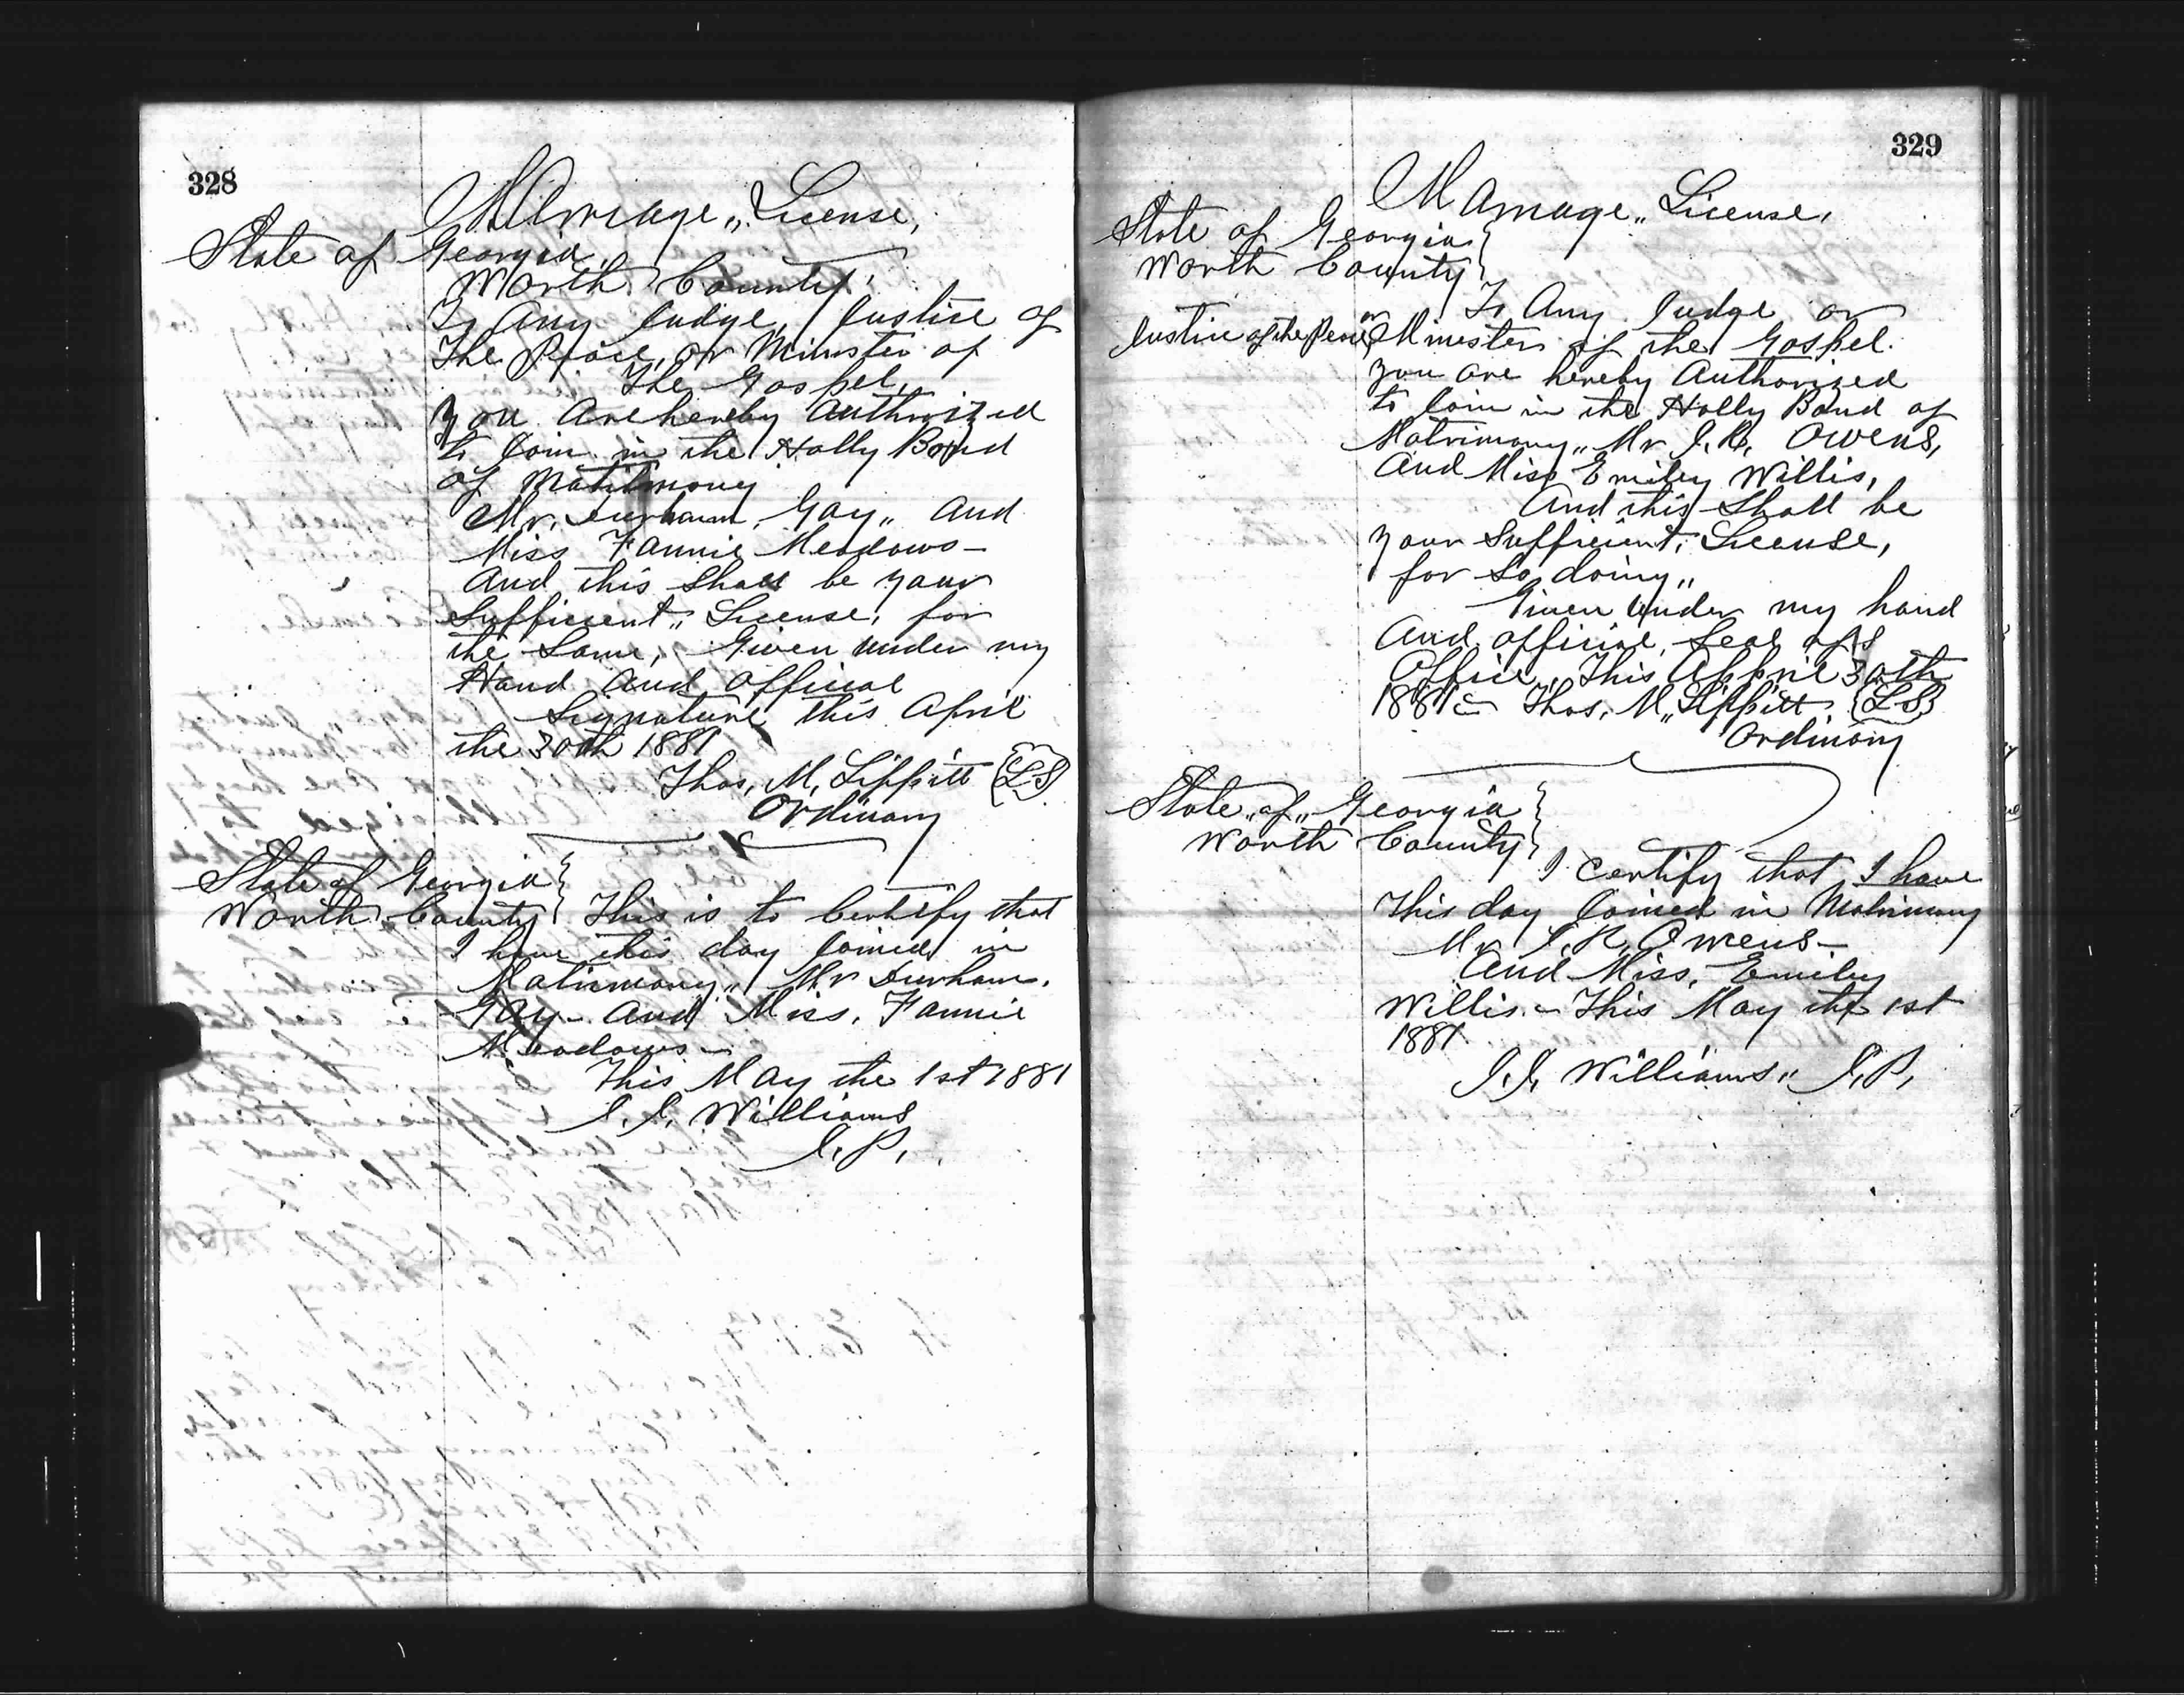 328
Marriage „ License,
State of Georgia,
Worth County
To Any Judge, Justice of
The Peace, or Minister of
The Gospel,
You Are hereby Authorized
to Join in the Holly Bond
of Matitmony
Mr, Durham, Gay „ And
Miss Fannie Meadows —
And this Shall be your
Sufficient „ License, for
the Same, Given under my
Hand And official
Signature this April
the 30th 1881
Thos, M, Lippitt {LS}
Ordinary
State of Georgia }
Worth County } This is to Certify that
I have this day Joined in
Matrimony „ Mr Durham.
Gay - And Miss. Fannie
Meadows —
This May the 1st 1881
J. J. Williams
J. P.,
329
Marriage „ License,
State of Georgia }
Worth County }
To Any Judge or
Justice of the Peace, or Minister of the Gospel.
You are hereby Authorized
to Join in the Holly Bond of
Matrimony „ Mr J. R. Owens,
And Miss Emiley Willis,
And this Shall be
your Sufficient, License,
for So doing „
Given Under my hand
And official, Seal of
Office, This Appril 30th
1881 — Thos, M „ Lippitt {LS}
Ordinary
State „ of „ Georgia }
Worth County }
I certify that I have
This day Joined in Matrimony
Mr J. R, Owens —
And Miss, Emiley
Willis. — This May the 1st
1881.
J. J. Williams „ J. P.,